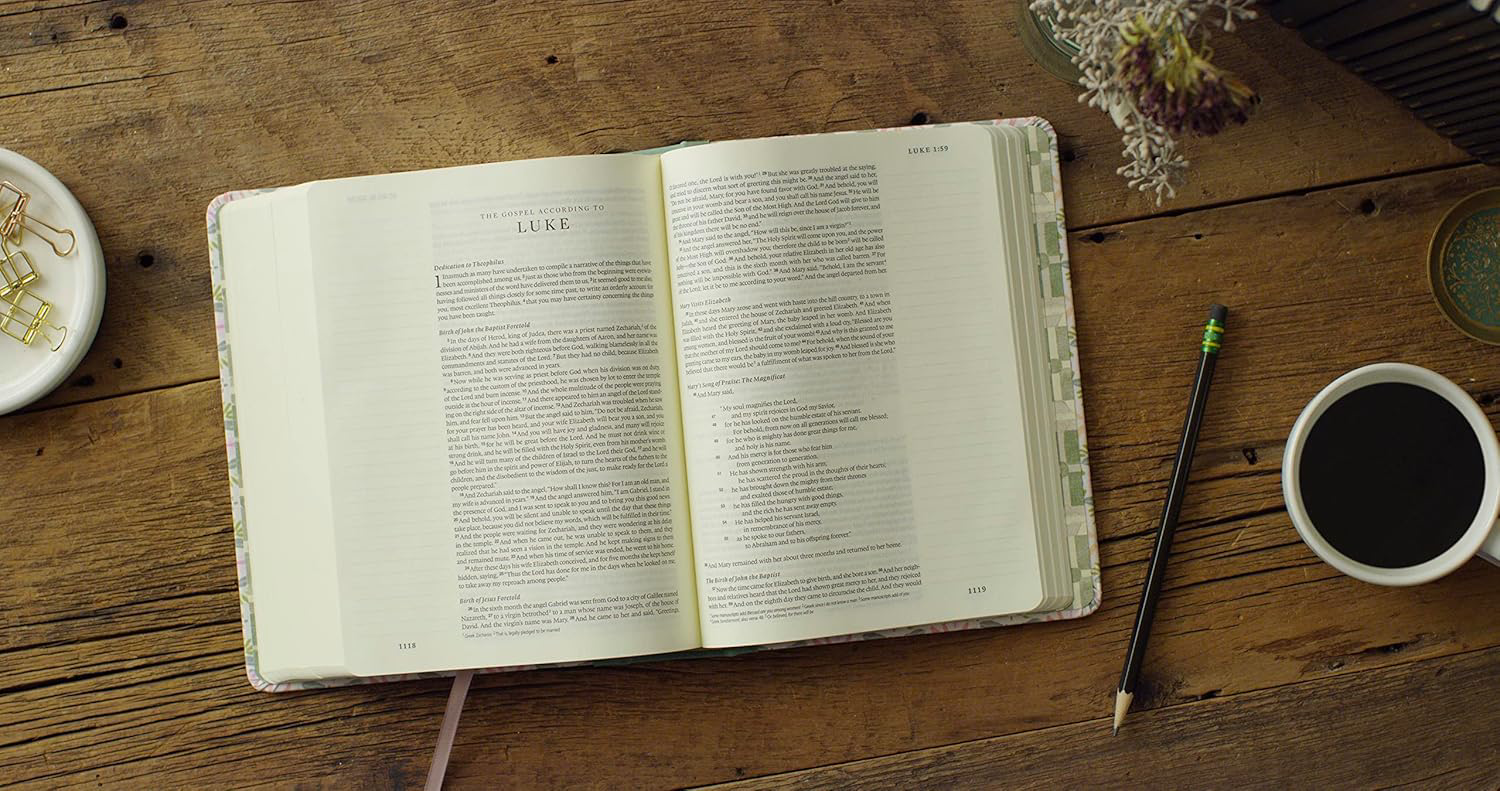 THE GOSPEL ACCORDING TO
LUKE
Dedication to Theophilus
1 Inasmuch as many have undertaken to compile a narrative of the things that have
been accomplished among us, 2 just as those who from the beginning were eyewit-
nesses and ministers of the word have delivered them to us, 3 it seemed good to me also,
having followed all things closely for some time past, to write an orderly account for
you, most excellent Theophilus, 4 that you may have certainty concerning the things
you have been taught.
Birth of John the Baptist Foretold
5 In the days of Herod, king of Judea, there was a priest named Zechariah,1 of the
division of Abijah. And he had a wife from the daughters of Aaron, and her name was
Elizabeth. 6 And they were both righteous before God, walking blamelessly in all the
commandments and statutes of the Lord. 7 But they had no child, because Elizabeth
was barren, and both were advanced in years.
8 Now while he was serving as priest before God when his division was on duty,
9 according to the custom of the priesthood, he was chosen by lot to enter the temple
of the Lord and burn incense. 10 And the whole multitude of the people were praying
outside at the hour of incense. 11 And there appeared to him an angel of the Lord stand-
ing on the right side of the altar of incense. 12 And Zechariah was troubled when he saw
him, and fear fell upon him. 13 But the angel said to him, "Do not be afraid, Zechariah,
for your prayer has been heard, and your wife Elizabeth will bear you a son, and you
shall call his name John. 14 And you will have joy and gladness, and many will rejoice
at his birth, 15 for he will be great before the Lord. And he must not drink wine or
strong drink, and he will be filled with the Holy Spirit, even from his mother's womb.
16 And he will turn many of the children of Israel to the Lord their God, 17 and he will
go before him in the spirit and power of Elijah, to turn the hearts of the fathers to the
children, and the disobedient to the wisdom of the just, to make ready for the Lord a
people prepared."
18 And Zechariah said to the angel, "How shall I know this? For I am an old man, and
my wife is advanced in years." 19 And the angel answered him, "I am Gabriel. I stand in
the presence of God, and I was sent to speak to you and to bring you this good news.
20 And behold, you will be silent and unable to speak until the day that these things
take place, because you did not believe my words, which will be fulfilled in their time."
21 And the people were waiting for Zechariah, and they were wondering at his delay
in the temple. 22 And when he came out, he was unable to speak to them, and they
realized that he had seen a vision in the temple. And he kept making signs to them
and remained mute. 23 And when his time of service was ended, he went to his home.
24 After these days his wife Elizabeth conceived, and for five months she kept herself
hidden, saying, 25 "Thus the Lord has done for me in the days when he looked on me,
to take away my reproach among people."
Birth of Jesus Foretold
26 In the sixth month the angel Gabriel was sent from God to a city of Galilee named
Nazareth, 27 to a virgin betrothed2 to a man whose name was Joseph, of the house of
David. And the virgin's name was Mary. 28 And he came to her and said, "Greetings,
1 Greek Zacharias 2 That is, legally pledged to be married
1118
LUKE 1:59
O favored one, the Lord is with you!"1 29 But she was greatly troubled at the saying,
and tried to discern what sort of greeting this might be. 30 And the angel said to her,
"Do not be afraid, Mary, for you have found favor with God. 31 And behold, you will
conceive in your womb and bear a son, and you shall call his name Jesus. 32 He will be
great and will be called the Son of the Most High. And the Lord God will give to him
the throne of his father David, 33 and he will reign over the house of Jacob forever, and
of his kingdom there will be no end."
34 And Mary said to the angel, "How will this be, since I am a virgin?"2
35 And the angel answered her, "The Holy Spirit will come upon you, and the power
of the Most High will overshadow you; therefore the child to be born3 will be called
holy—the Son of God. 36 And behold, your relative Elizabeth in her old age has also
conceived a son, and this is the sixth month with her who was called barren. 37 For
nothing will be impossible with God." 38 And Mary said, "Behold, I am the servant4
of the Lord; let it be to me according to your word." And the angel departed from her.
Mary Visits Elizabeth
39 In those days Mary arose and went with haste into the hill country, to a town in
Judah, 40 and she entered the house of Zechariah and greeted Elizabeth. 41 And when
Elizabeth heard the greeting of Mary, the baby leaped in her womb. And Elizabeth
was filled with the Holy Spirit, 42 and she exclaimed with a loud cry, "Blessed are you
among women, and blessed is the fruit of your womb! 43 And why is this granted to me
that the mother of my Lord should come to me? 44 For behold, when the sound of your
greeting came to my ears, the baby in my womb leaped for joy. 45 And blessed is she who
believed that there would be5 a fulfillment of what was spoken to her from the Lord."
Mary's Song of Praise: The Magnificat
46 And Mary said,
"My soul magnifies the Lord,
47 and my spirit rejoices in God my Savior,
48 for he has looked on the humble estate of his servant.
For behold, from now on all generations will call me blessed;
49 for he who is mighty has done great things for me,
and holy is his name.
50 And his mercy is for those who fear him
from generation to generation.
51 He has shown strength with his arm;
he has scattered the proud in the thoughts of their hearts;
52 he has brought down the mighty from their thrones
and exalted those of humble estate;
53 he has filled the hungry with good things,
and the rich he has sent away empty.
54 He has helped his servant Israel,
in remembrance of his mercy,
55 as he spoke to our fathers,
to Abraham and to his offspring forever."
56 And Mary remained with her about three months and returned to her home.
The Birth of John the Baptist
57 Now the time came for Elizabeth to give birth, and she bore a son. 58 And her neigh-
bors and relatives heard that the Lord had shown great mercy to her, and they rejoiced
with her. 59 And on the eighth day they came to circumcise the child. And they would
1 Some manuscripts add blessed are you among women! 2 Greek since I do not know a man 3 Some manuscripts add of you
4 Greek bondservant; also verse 48 5 Or believed, for there will be
1119